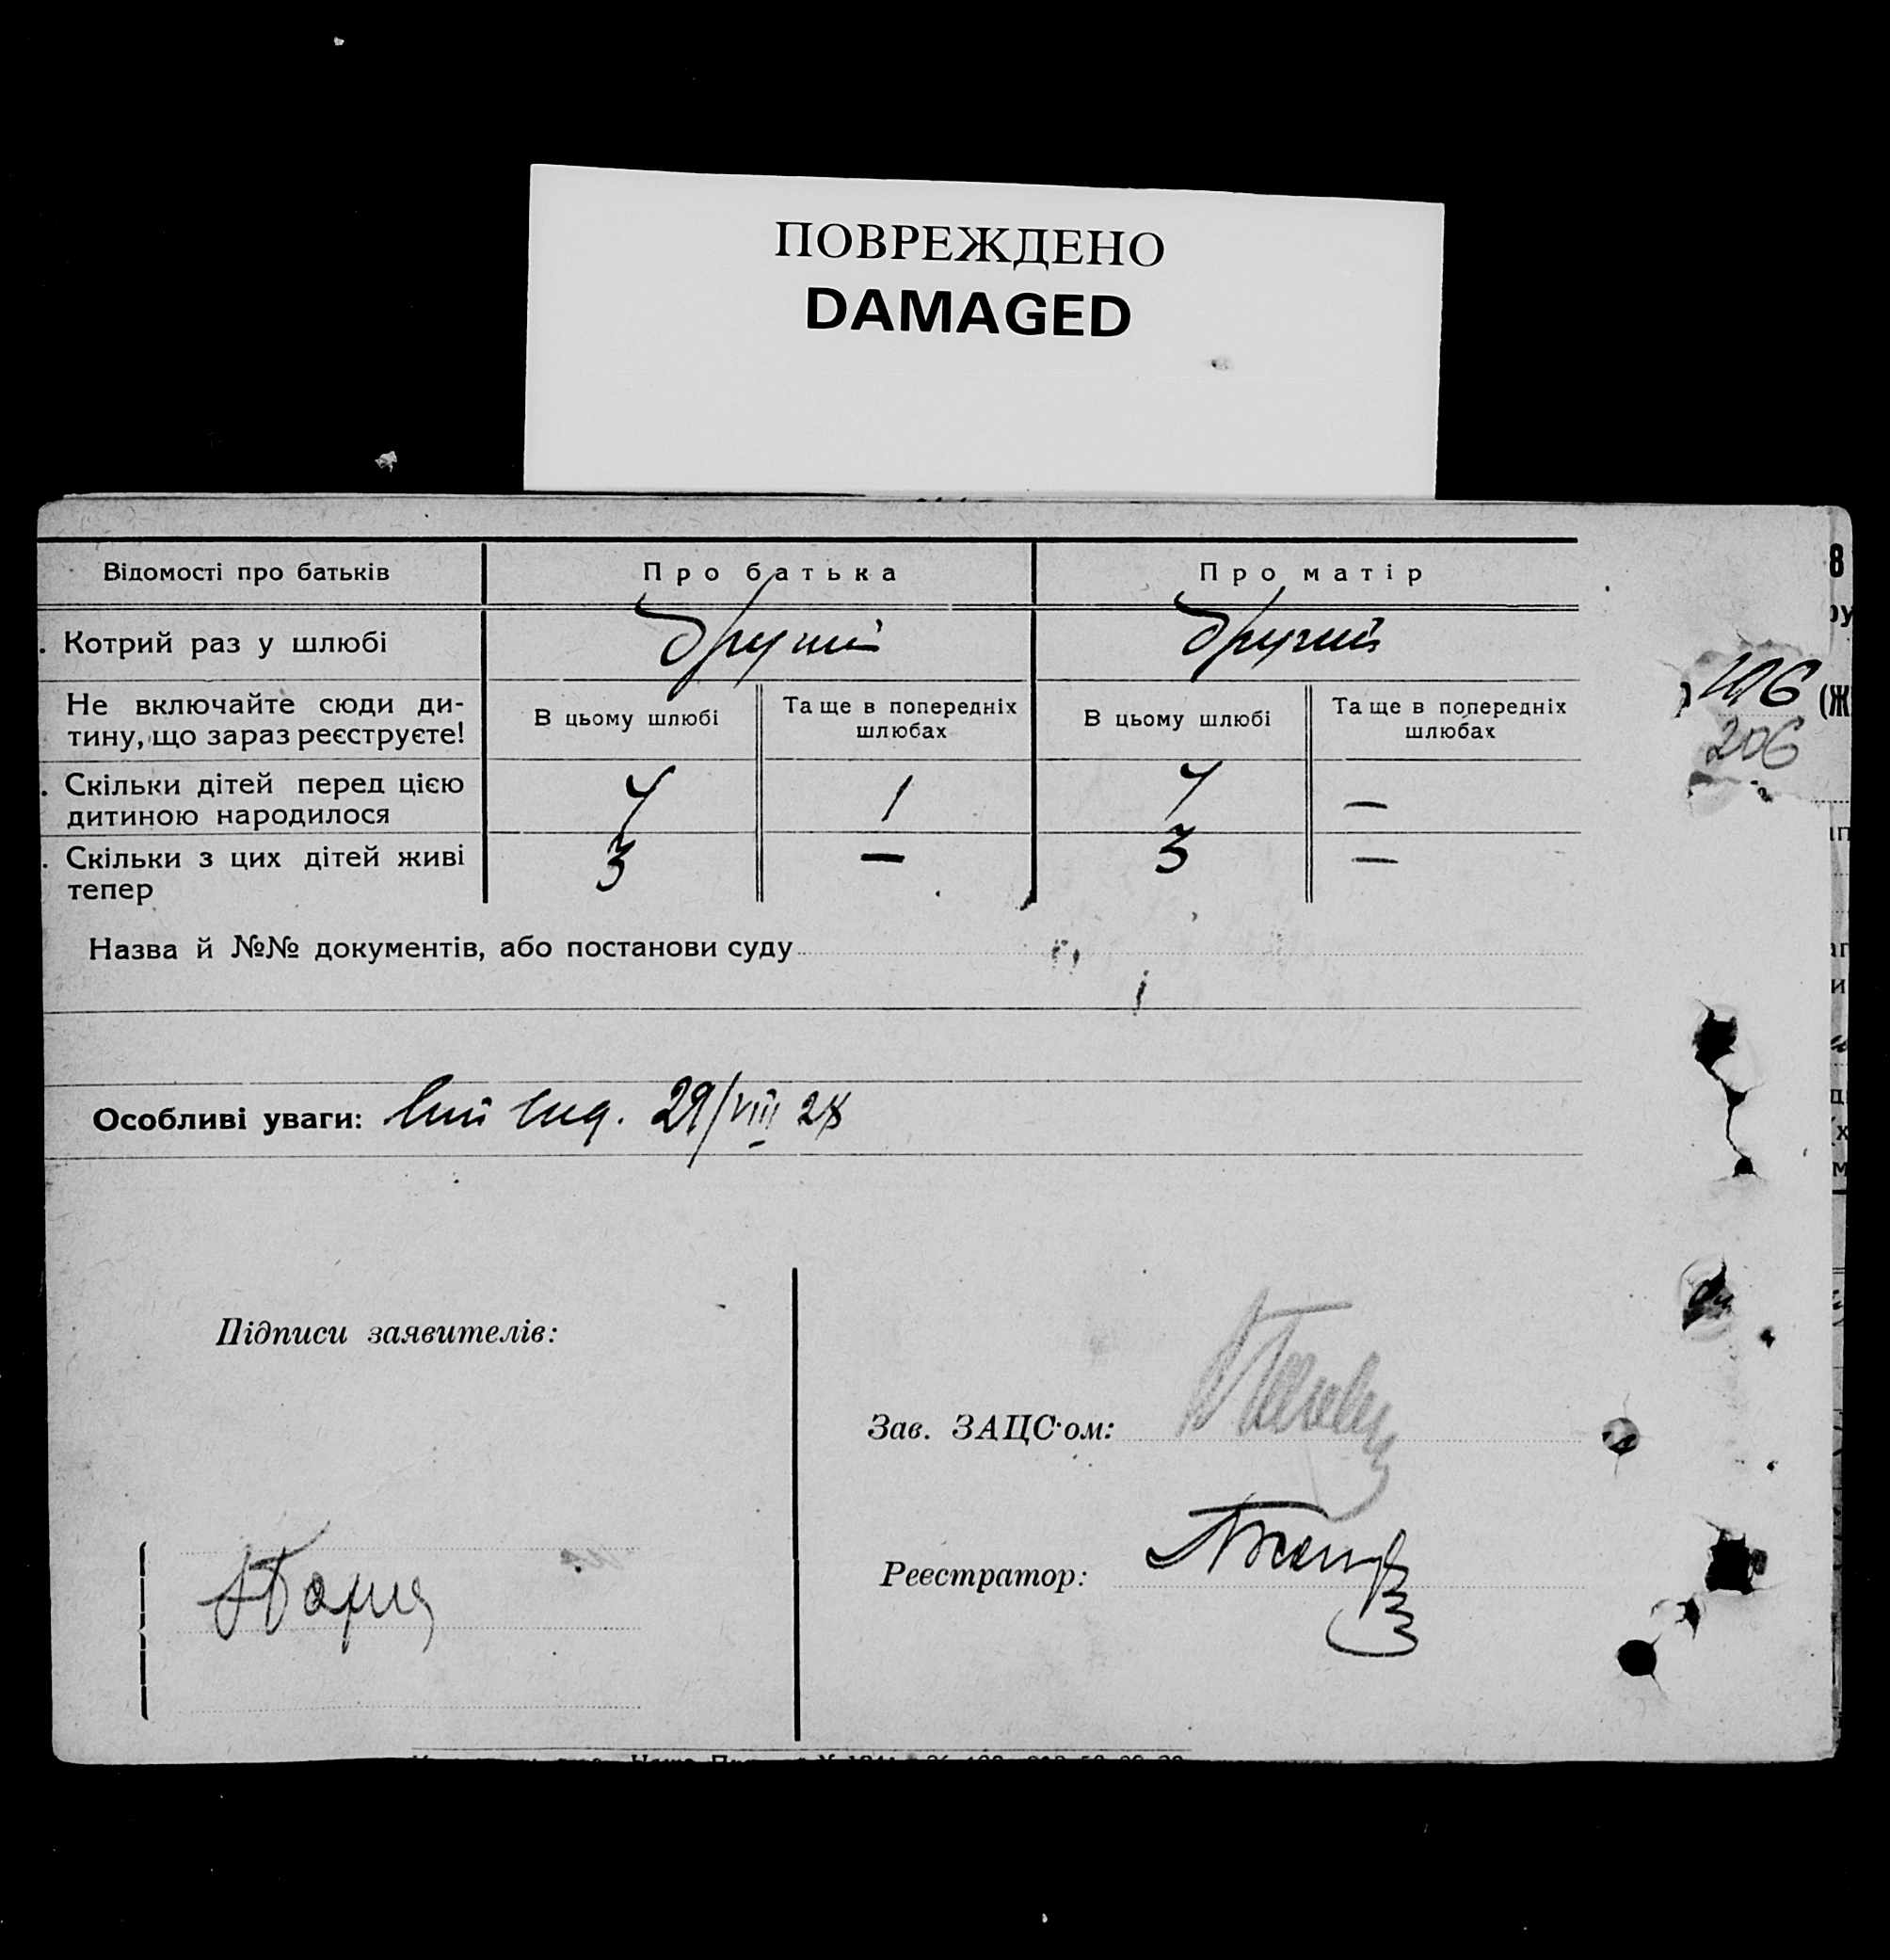 ПОВРЕЖДЕНО
DAMAGED
Відомості про батьків
Про батька
Про матір
. Котрий раз у шлюбі
другий
другий
Не включайте сюди ди-
тину, що зараз реєструєте!
В цьому шлюбі
Та ще в попередніх
шлюбах
В цьому шлюбі
Та ще в попередніх
шлюбах
. Скільки дітей перед цією
дитиною народилося
4
1
4
—
. Скільки з цих дітей живі
тепер
3
—
3
—
Назва й №№ документів, або постанови суду
Особливі уваги: 29/VIII 28
106
206
Підписи заявителів:
Зав. ЗАЦС'ом:
Реєстратор:
8
(Ж